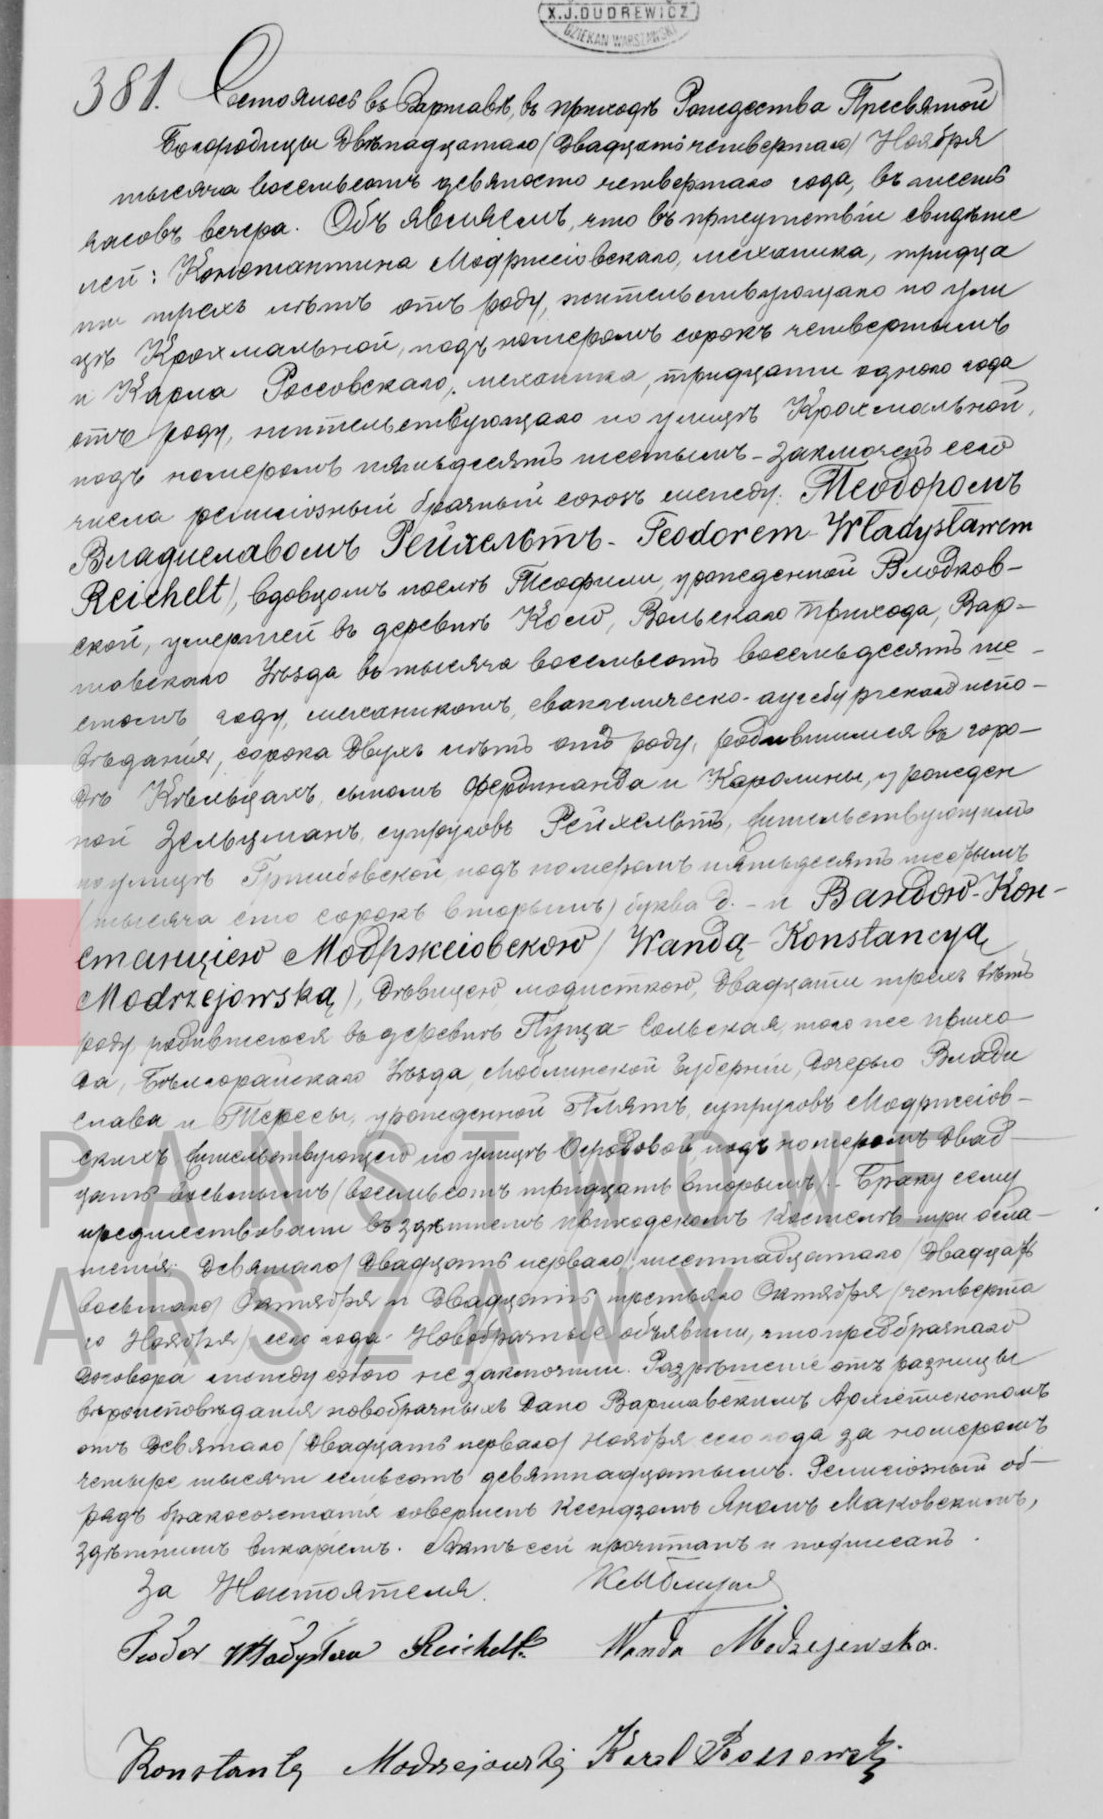 X.J.DUDREWICZ
DZIEKAN WARSZAWSKI
381. Состоялось въ Варшавѣ, въ приходѣ Рождества Пресвятой
Богородицы двѣнадцатаго (двадцать четвертаго) Ноября
тысяча восемьсотъ девяносто четвертаго года, въ шесть
часовъ вечера. Объявляемъ, что въ присутствіи свидѣте
лей: Константина Модржеіовскаго, механика, тридца
ти трехъ лѣтъ отъ роду, жительствующаго по ули
цѣ Крохмальной, подъ номеромъ сорокъ четвертымъ
и Карла Россовскаго, механика, тридцати одного года
отъ роду, жительствующаго по улицѣ Крохмальной,
подъ номеромъ пятьдесятъ шестымъ - заключенъ сего
числа религіозный брачный союзъ между: Теодоромъ
Владиславомъ Рейхельтъ - Teodorem-Władysławem
Reichelt), вдовцомъ послѣ Теофили, урожденной Влодков-
ской, умершей въ деревнѣ Коло, Вольскаго прихода, Вар-
шавскаго Уѣзда въ тысяча восемьсотъ восемьдесятъ ше-
стомъ году, механикомъ, евангелическо-аугсбургскаго испо-
вѣданія, сорока двухъ лѣтъ отъ роду, родившимся въ горо-
дѣ Кѣльцахъ, сыномъ Фердинанда и Каролины, урожден
ной Зельцманъ, супруговъ Рейхельтъ, жительствующимъ
по улицѣ Гржибовской подъ номеромъ пятьдесятъ шестымъ
(тысяча сто сорокъ вторымъ) буква д. - и Вандою-Кон-
станціею Модржеіовскою / Wandą-Konstancyą
Modrzejowską), дѣвицею, модисткою, двадцати трехъ лѣтъ
роду, родившеюся въ деревнѣ Пуща-Сольская, того же прихо
да, Бѣлгорайскаго Уѣзда, Люблинской Губерніи, дочерью Влади
слава и Тересы, урожденной Плятъ, супруговъ Модржеіов-
скихъ жительствующею по улицѣ Огродовой, подъ номеромъ двад-
цать восьмымъ (восемьсотъ тридцать вторымъ). - Браку сему
предшествовали въ здѣшнемъ приходскомъ костелѣ три огла-
шенія: девятаго (двадцать перваго), шестнадцатаго (двадцать
восьмаго) Октября и двадцать третьяго Октября (четверта
го Ноября) сего года. Новобрачные объявили, что предбрачнаго
договора между собою не заключили. Разрѣшеніе отъ разницы
вѣроисповѣданія новобрачныхъ дано Варшавскимъ Архіепископомъ
отъ девятаго (двадцать перваго) Ноября сего года за номеромъ
четыре тысячи семьсотъ девятнадцатымъ. Религіозный об-
рядъ бракосочетанія совершенъ Ксендзомъ Яномъ Маковскимъ,
здѣшнимъ викаріемъ. Актъ сей прочитанъ и подписанъ.
За Настоятеля
Teodor Władysław Reichelt. Wanda Modrzejewska.
Konstanty Modrzejowski Karol Rossowski
PAŃSTWOWE
ARSZAWY